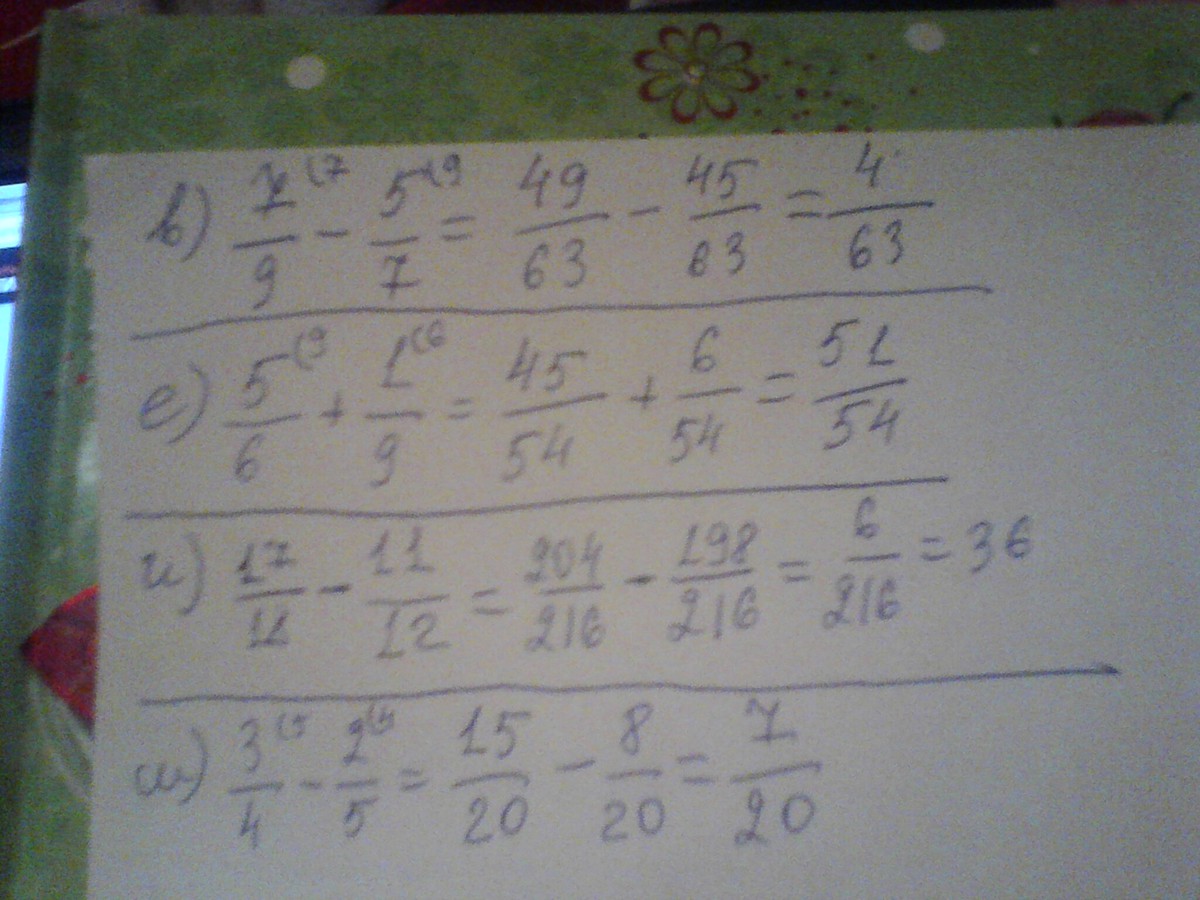 в) 7⁽⁷/9 - 5⁽⁹/7 = 49/63 - 45/63 = 4/63
е) 5⁽⁹/6 + 1⁽⁶/9 = 45/54 + 6/54 = 51/54
и) 17/18 - 11/12 = 204/216 - 198/216 = 6/216 = 36
ш) 3⁽⁵/4 - 2⁽⁴/5 = 15/20 - 8/20 = 7/20